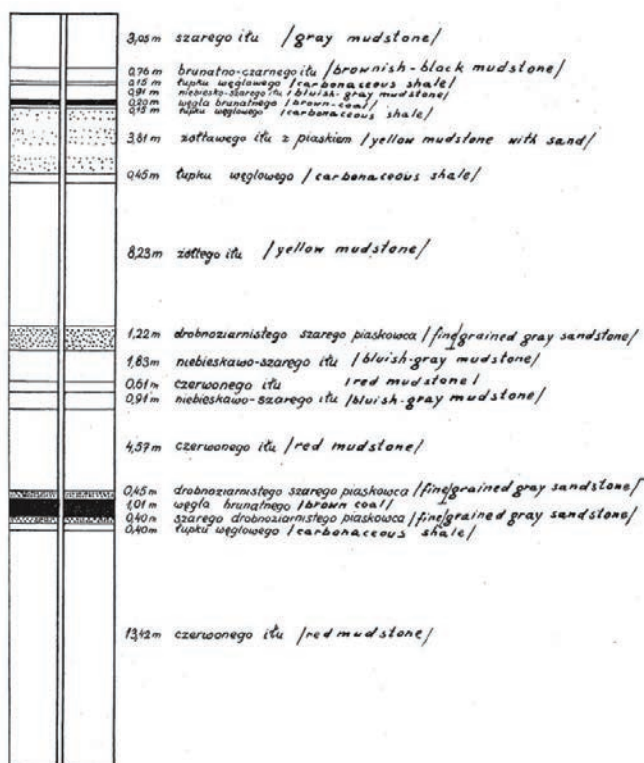 3,05 m szarego iłu /gray mudstone/
0,76 m brunatno-czarnego iłu /brownish-black mudstone/
0,15 m łupku węglowego /carbonaceous shale/
0,91 m niebiesko-szarego iłu /bluish-gray mudstone/
0,20 m węgla brunatnego /brown-coal/
0,15 m łupku węglowego /carbonaceous shale/
3,81 m żółtawego iłu z piaskiem /yellow mudstone with sand/
0,45 m łupku węglowego /carbonaceous shale/
8,23 m żółtego iłu /yellow mudstone/
1,22 m drobnoziarnistego szarego piaskowca /fine/grained gray sandstone/
1,83 m niebieskawo-szarego iłu /bluish-gray mudstone/
0,61 m czerwonego iłu /red mudstone/
0,91 m niebieskawo-szarego iłu /bluish-gray mudstone/
4,57 m czerwonego iłu /red mudstone/
0,45 m drobnoziarnistego szarego piaskowca /fine/grained gray sandstone/
1,01 m węgla brunatnego /brown coal/
0,40 m szarego drobnoziarnistego piaskowca /fine/grained gray sandstone/
0,40 m łupku węglowego /carbonaceous shale/
13,42 m czerwonego iłu /red mudstone/